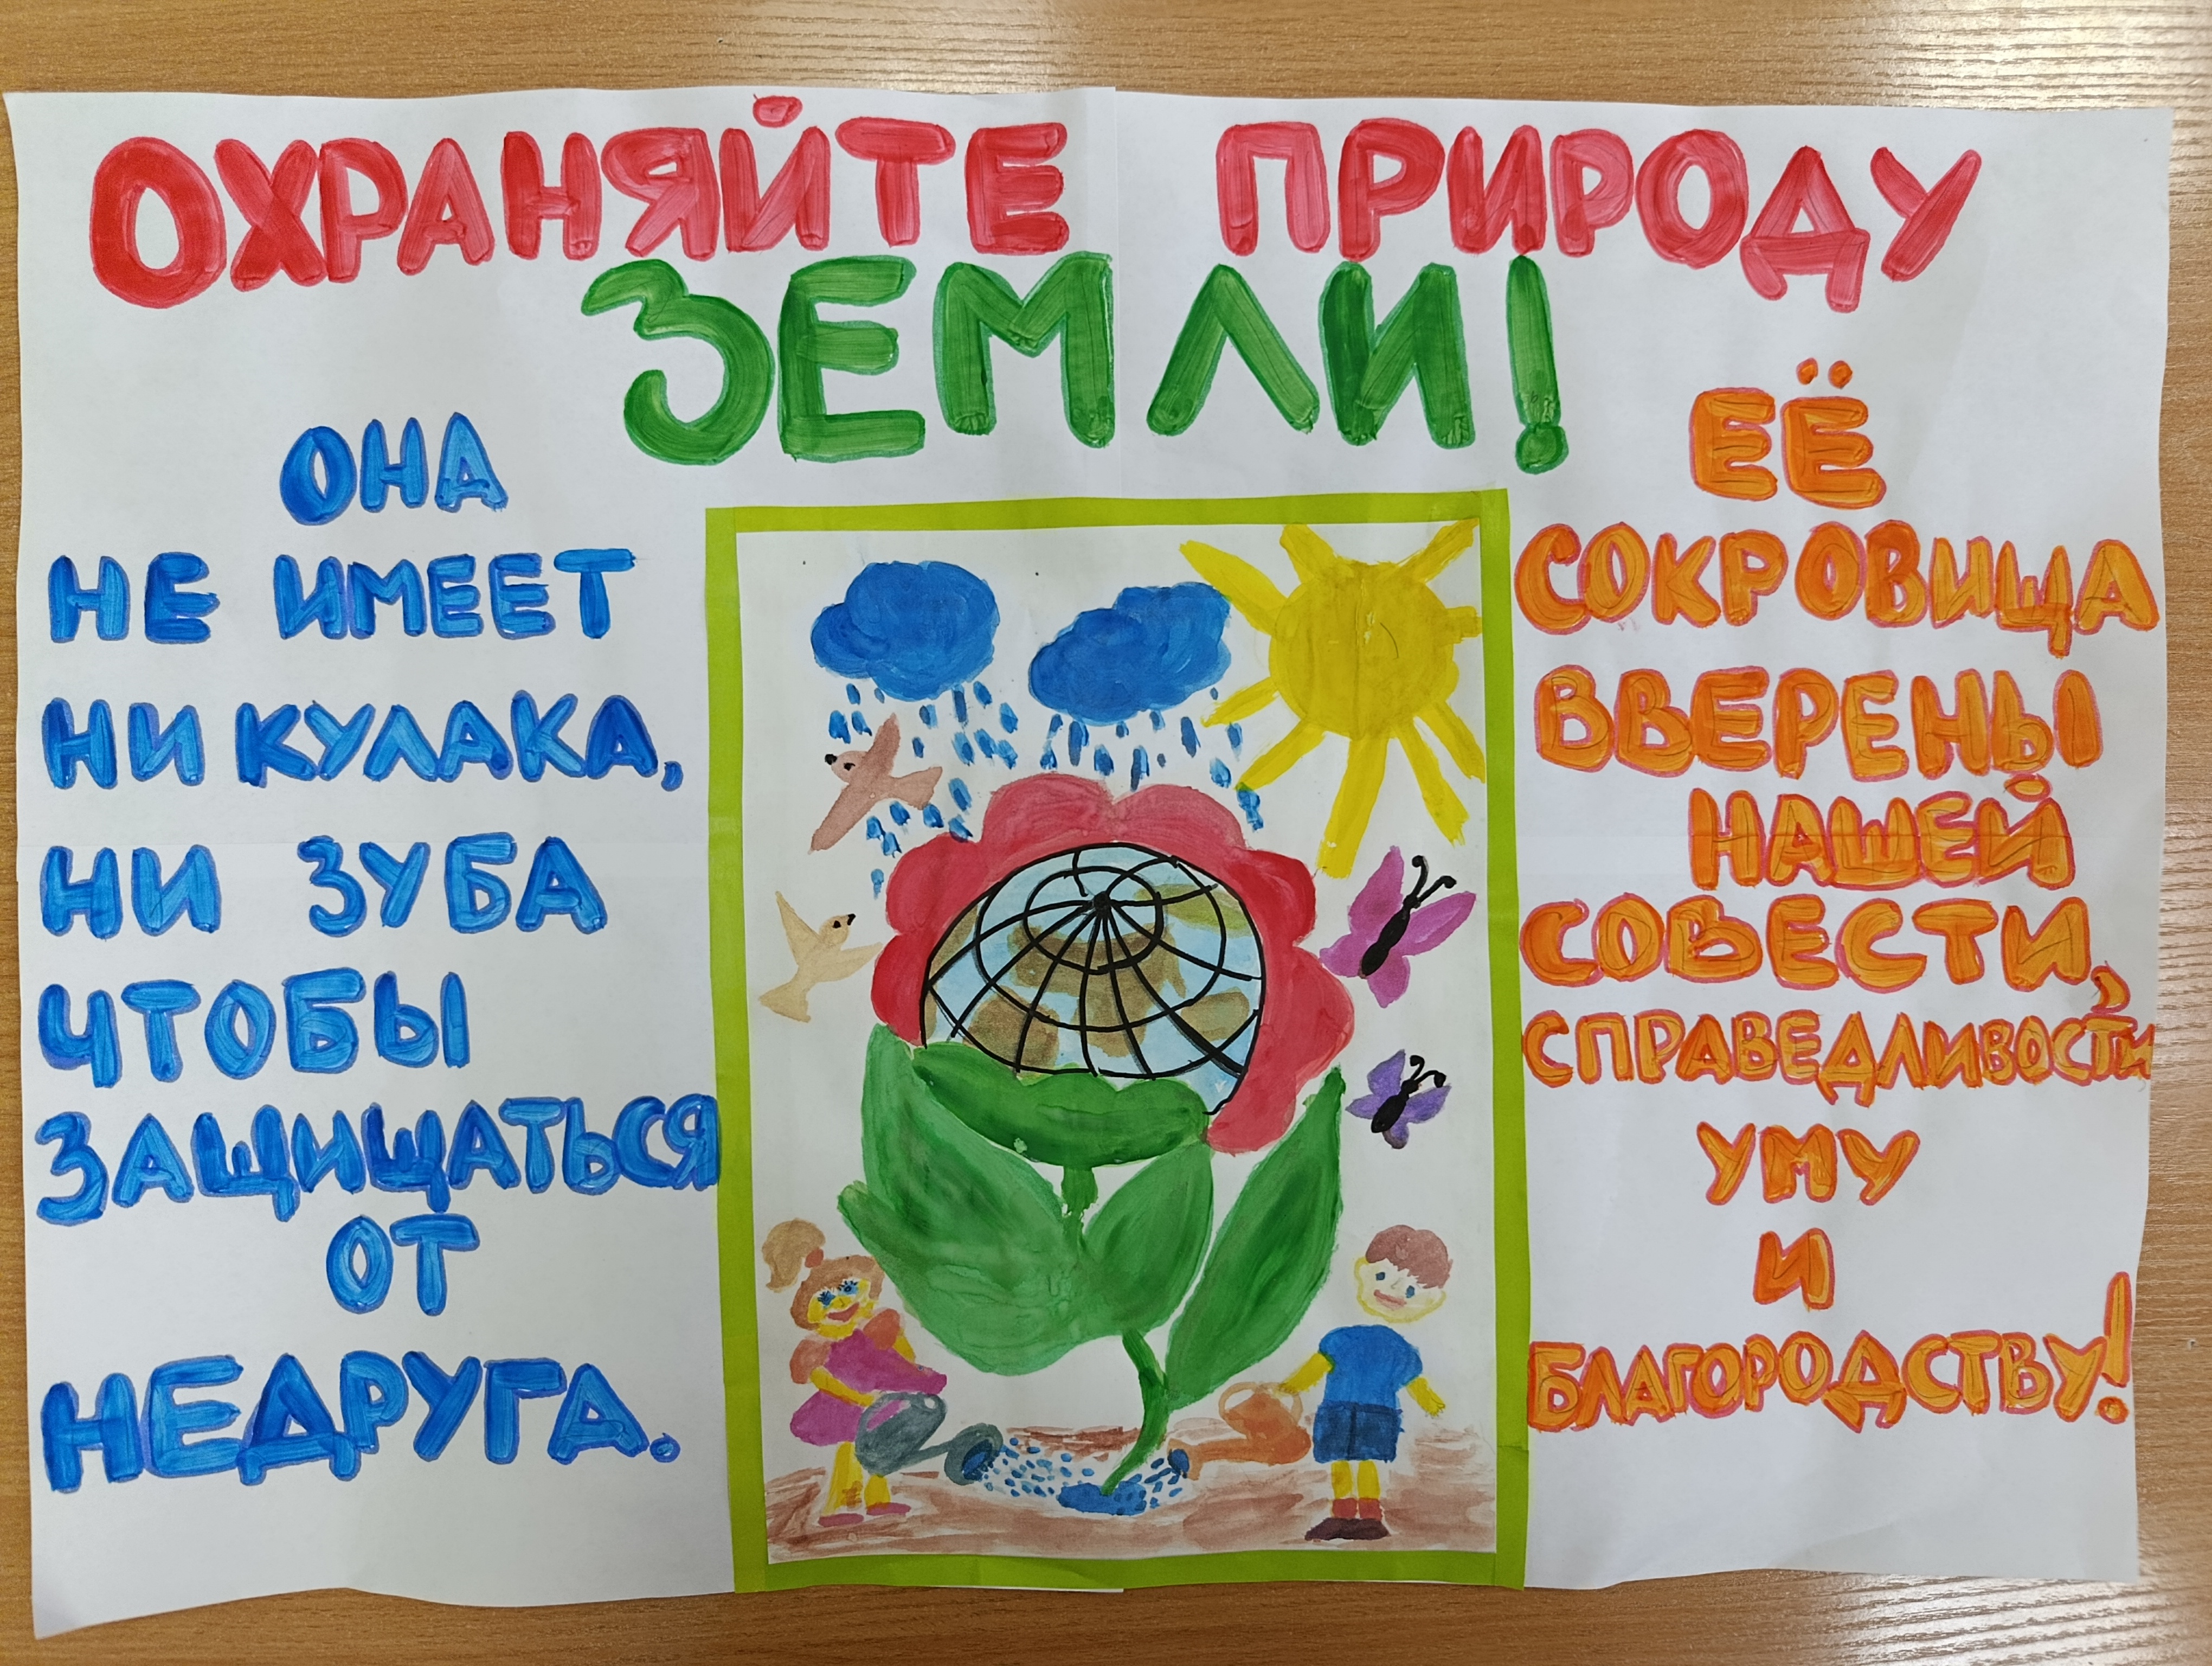 ОХРАНЯЙТЕ ПРИРОДУ
ЗЕМЛИ!
ОНА
НЕ ИМЕЕТ
НИ КУЛАКА,
НИ ЗУБА
ЧТОБЫ
ЗАЩИЩАТЬСЯ
ОТ
НЕДРУГА.
ЕЁ
СОКРОВИЩА
ВВЕРЕНЫ
НАШЕЙ
СОВЕСТИ,
СПРАВЕДЛИВОСТИ
УМУ
И
БЛАГОРОДСТВУ!